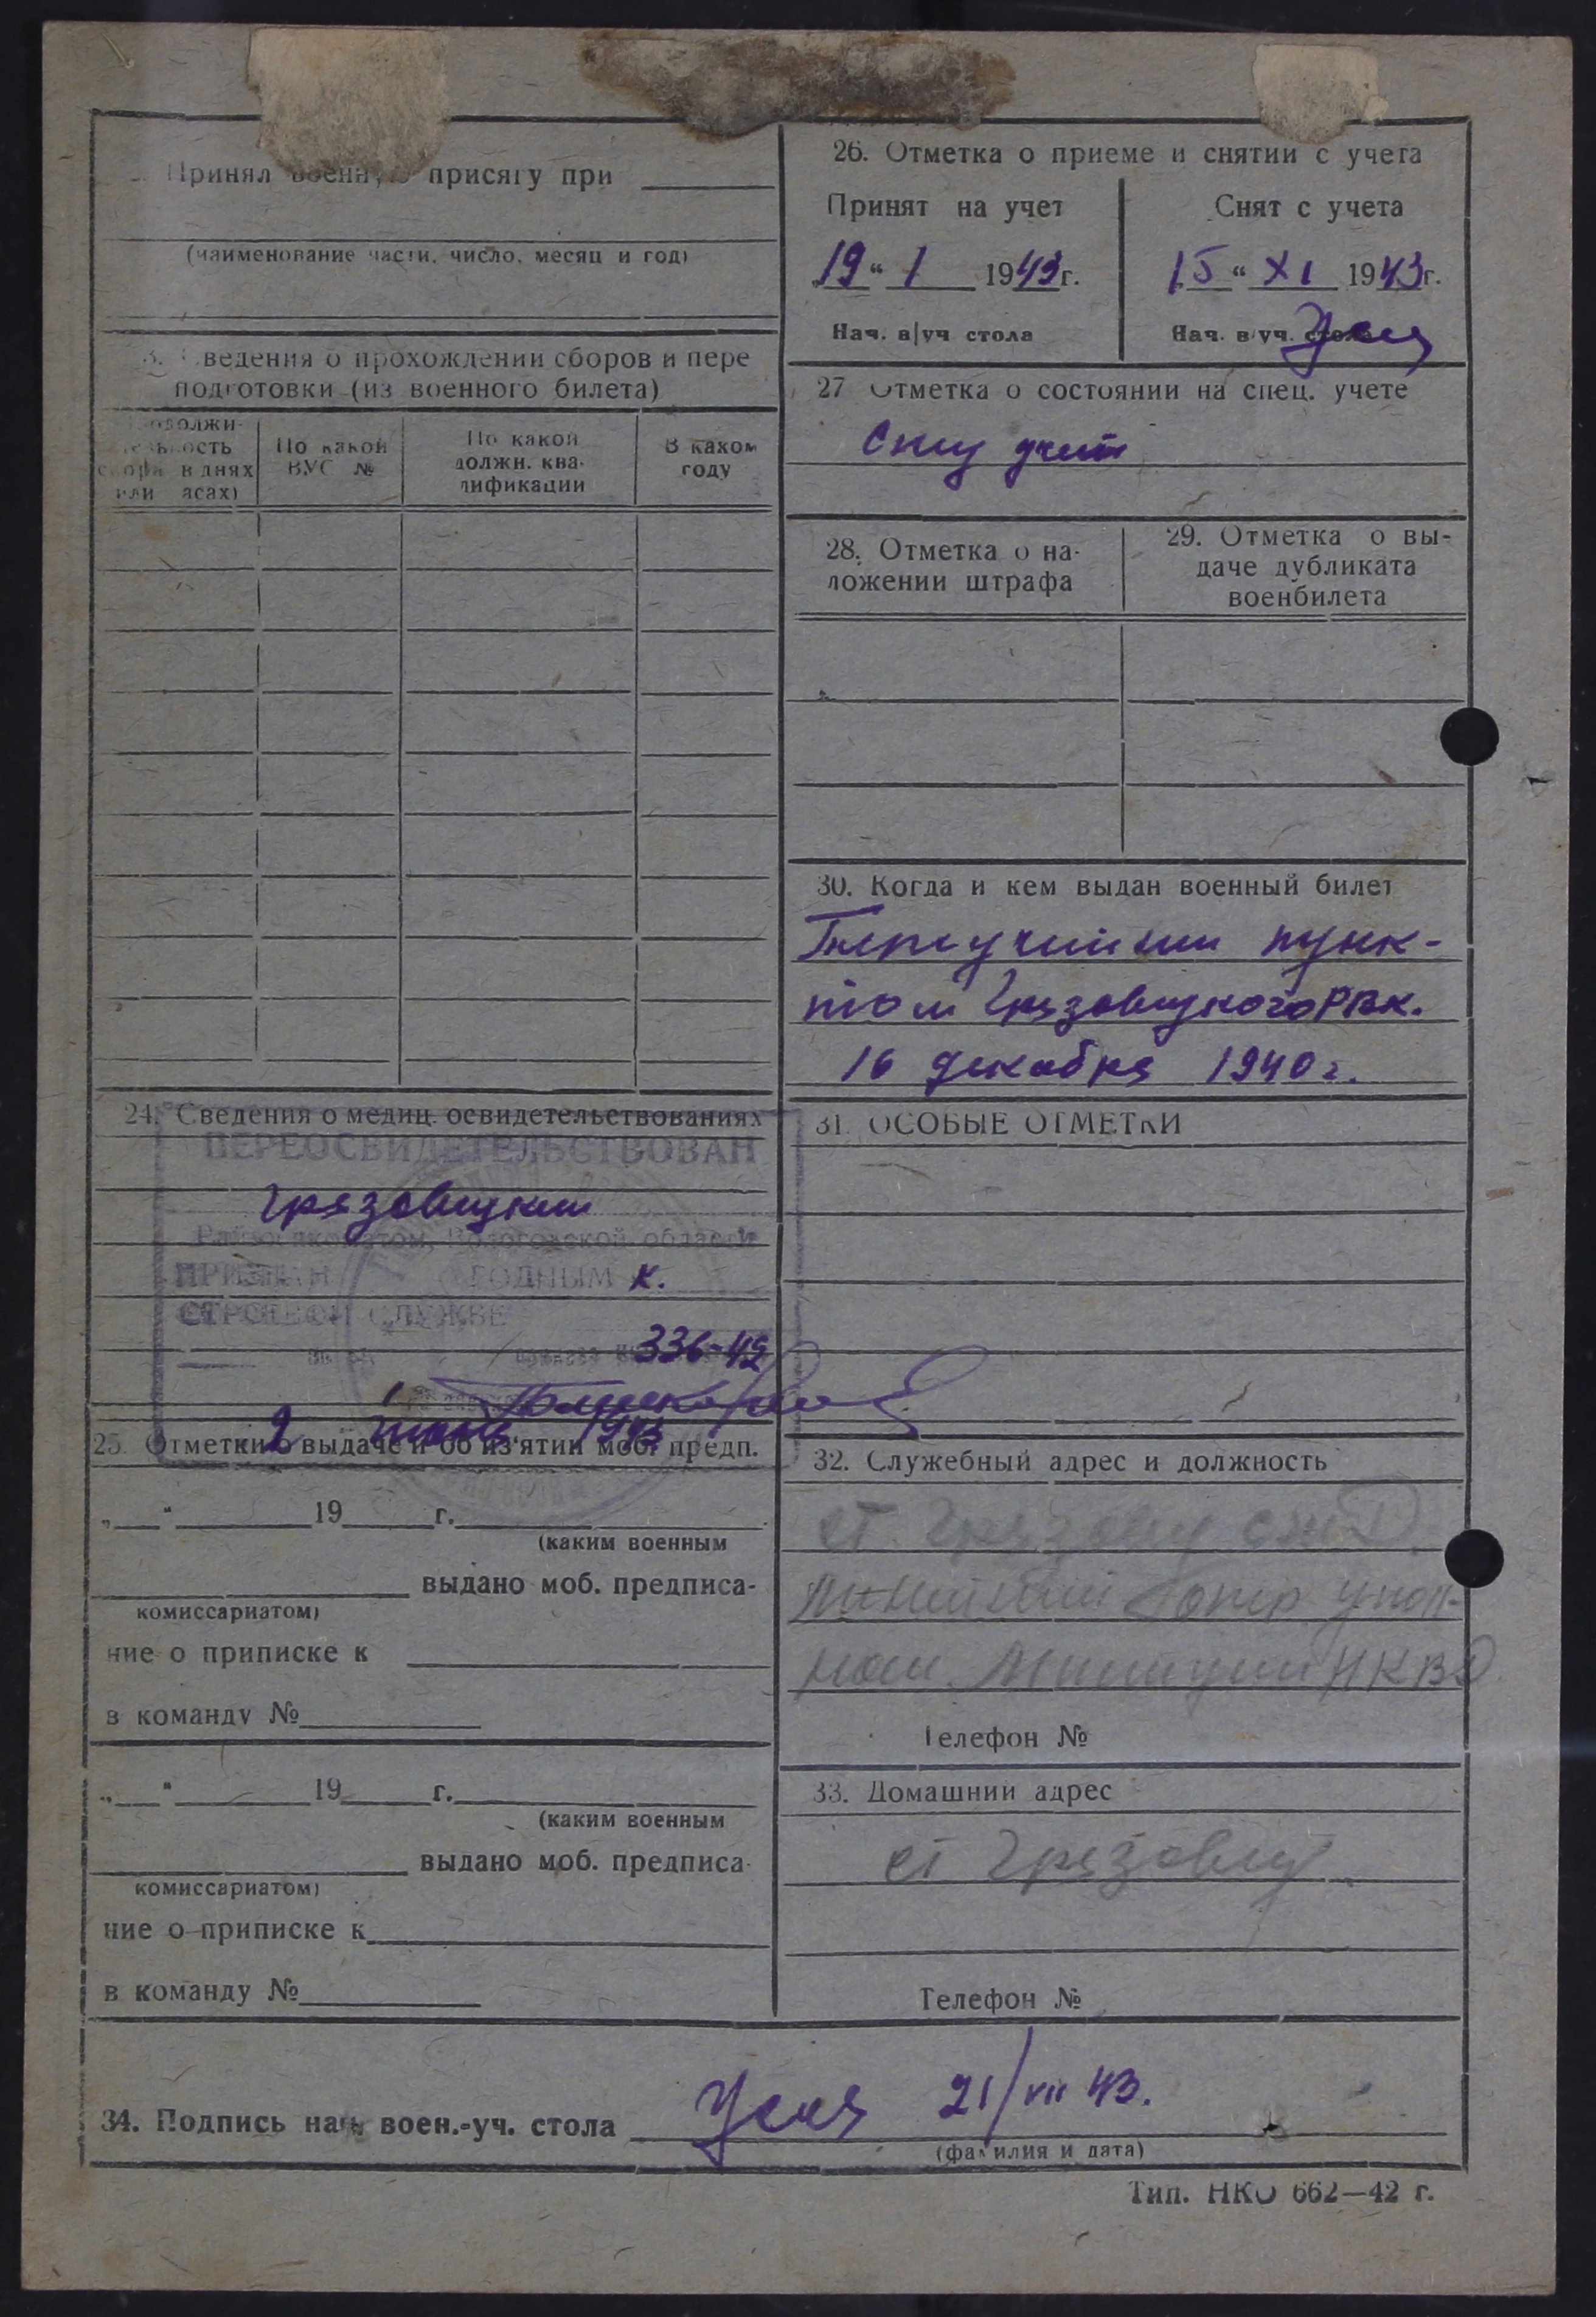 Принял военную присягу при
(наименование части, число, месяц и год)
Сведения о прохождении сборов и пере
подготовки (из военного билета)
По какой
ВУС №
По какой
должн. ква-
лификации
В каком
году
24. Сведения о медиц. освидетельствованиях
ПЕРЕОСВИДЕТЕЛЬСТВОВАН
Грязовецким
Райвоенкоматом, Вологодской области
ПРИЗНАН ГОДНЫМ к.
СТРОЕВОЙ СЛУЖБЕ
336-42
2 1943
25. Отметки о выдаче и об из'ятии моб. предп.
„ “ 19 г.
(каким военным
выдано моб. предписа-
комиссариатом)
ние о приписке к
в команду №
„ “ 19 г.
(каким военным
выдано моб. предписа-
комиссариатом)
ние о приписке к
в команду №
26. Отметка о приеме и снятии с учета
Принят на учет
„19“ 1 1943г.
Нач. в/уч стола
Снят с учета
15“ XI 1943г.
Нач. в/уч. стола
27 Отметка о состоянии на спец. учете
спец учет
28. Отметка о на-
ложении штрафа
29. Отметка о вы-
даче дубликата
военбилета
30. Когда и кем выдан военный билет
пунк-
том Грязовецкого РВК.
16 декабря 1940 г.
31. ОСОБЫЕ ОТМЕТКИ
32. Служебный адрес и должность
ст. Грязовец
Линейный опер. упол-
ном. Милиции НКВД.
Телефон №
33. Домашний адрес
ст Грязовец
Телефон №
34. Подпись нач. воен.-уч. стола 21/VII 43.
(фамилия и дата)
Тип. НКО 662—42 г.